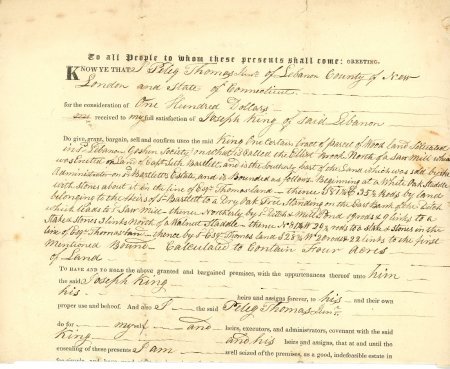 To all People to whom these presents shall come: GREETING.
KNOW YE THAT I Peleg Thomas Jun.r of Lebanon County of New
London and State of Connecticut
for the consideration of One Hundred Dollars
received to my full satisfaction of Joseph King of said Lebanon
Do give, grant, bargain, sell and confirm unto the said King One certain tract or parcel of Wood Land Situated
in s.d Lebanon Goshen Society on what is called the Wood North of a Saw Mill which
was Erected on Land of Capt Seth Bartlett, and is the part of the Land which was sold by the
Administrator on s.d Bartletts Estate, and is Bounded as follows Beginning at a White Oak Staddle
with Stones about it in the line of Esq.r Thomas land - thence rods by Land
belonging to the heirs of s.d Bartlett to a Dry Oak Tree Standing on the East Bank of the Ditch
which leads to s.d Saw Mill - thence Northerly by s.d Ditch & Mill Pond rods & 9 links to a
Stake & Stones 3 links North of a Walnut Staddle - thence rods to a Stake & Stones in the
line of Esq.r Thomas land - thence by s.d Esq.r Thomas land 20 rods & 22 links to the first
mentioned Bound - Calculated to Contain Four Acres
of Land
TO HAVE AND TO HOLD the above granted and bargained premises, with the appurtenances thereof unto him
the said, Joseph King
his heirs and assigns forever, to his and their own
proper use and behoof. And also I the said Peleg Thomas Jun.r
do for myself and heirs, executors, and administrators, covenant with the said
King and his heirs and assigns, that at and until the
ensealing of these presents I am well seized of the premises, as a good, indefeasible estate in